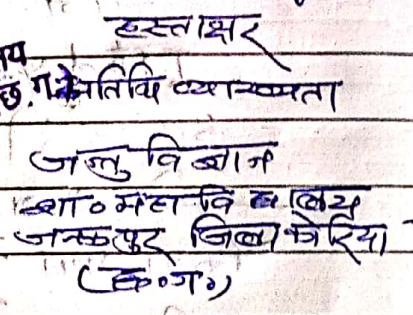 हस्ताक्षर
य
छ.ग. अतिथि व्याख्याता
जन्तु विज्ञान
शा० महाविद्यालय
जनकपुर जिला कोरिया
(छ०ग०)